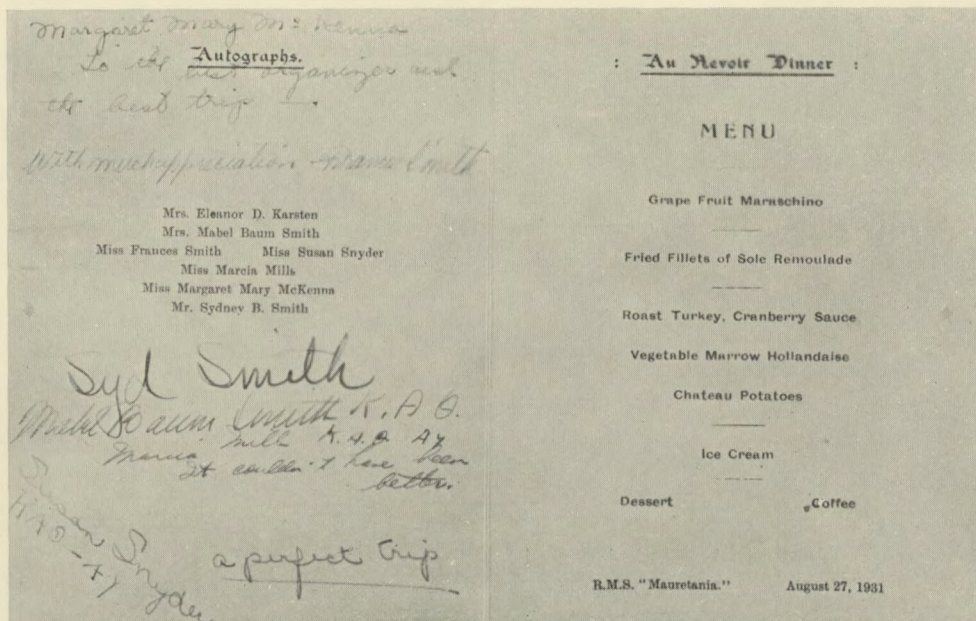 Margaret Mary McKenna
Autographs.
To the best organizer and
the best trip —.
With much appreciation - Frances Smith
Mrs. Eleanor D. Karsten
Mrs. Mabel Baum Smith
Miss Frances Smith Miss Susan Snyder
Miss Marcia Mills
Miss Margaret Mary McKenna
Mr. Sydney B. Smith
Syd Smith
Mabel Baum Smith K. A. Θ.
Marcia Mills K.A.Θ. AY
It couldn't have been
better.
Susan Snyder
a perfect trip
: Au Revoir Dinner :
MENU
Grape Fruit Maraschino
Fried Fillets of Sole Remoulade
Roast Turkey, Cranberry Sauce
Vegetable Marrow Hollandaise
Chateau Potatoes
Ice Cream
Dessert Coffee
R.M.S. "Mauretania." August 27, 1931